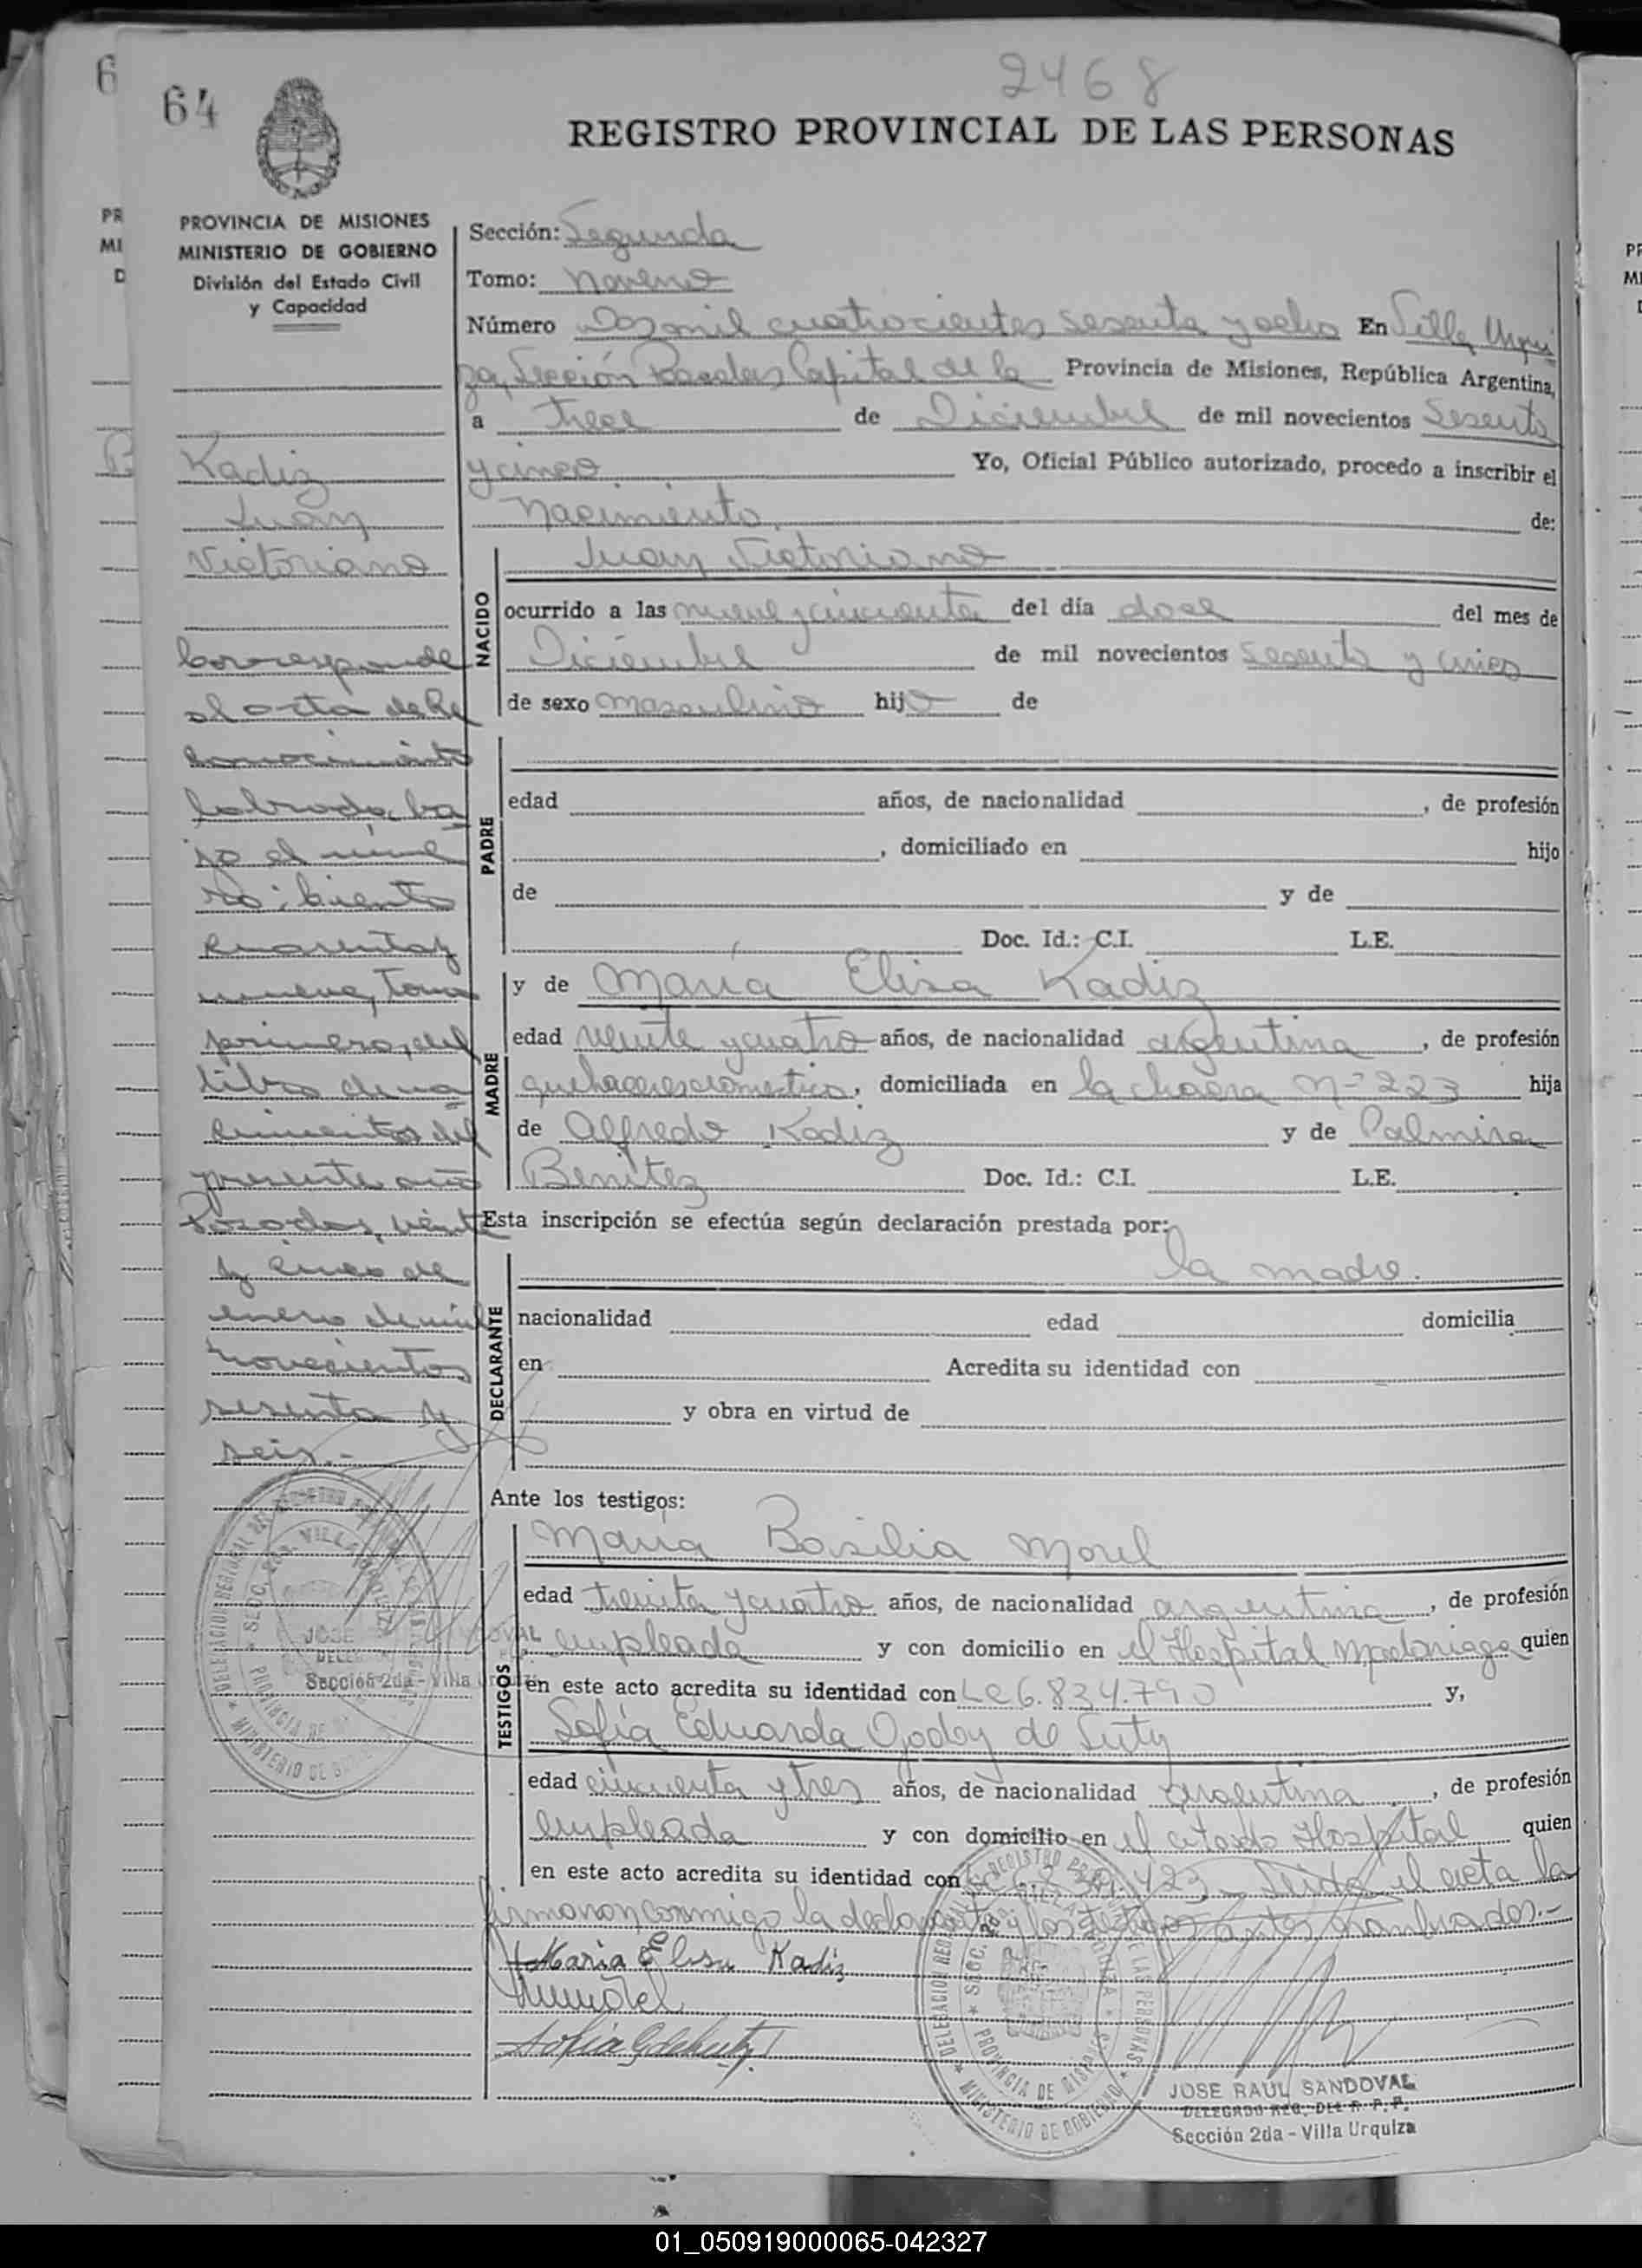 2468
6
64
REGISTRO PROVINCIAL DE LAS PERSONAS
PR
MI
D
PROVINCIA DE MISIONES
MINISTERIO DE GOBIERNO
División del Estado Civil
y Capacidad
Kadiz
Juan
Victoriano
Corresponde
al acta de Re
conocimiento
labrada ba
jo el núme
ro: ciento
cuarenta y
nueve, tomo
primero, del
libro de na
cimientos del
presente año
Posadas, veinte
y cinco de
enero de mil
novecientos
sesenta y
seis.-
Sección: Segunda
Tomo: Noveno
Número Dos mil cuatrocientos sesenta y ocho En Villa Urqui
za, Sección Posadas Capital de la Provincia de Misiones, República Argentina,
a trece de Diciembre de mil novecientos sesenta
y cinco Yo, Oficial Público autorizado, procedo a inscribir el
Nacimiento de:
NACIDO
Juan Victoriano
ocurrido a las nueve y cincuenta del día doce del mes de
Diciembre de mil novecientos sesenta y cinco
de sexo masculino hijo de
PADRE
edad años, de nacionalidad , de profesión
, domiciliado en hijo
de y de
Doc. Id.: C.I. L.E.
MADRE
y de María Elisa Kadiz
edad veinte y cuatro años, de nacionalidad argentina , de profesión
quehaceres domestico, domiciliada en la chacra Nº 223 hija
de Alfredo Kadiz y de Palmira
Benítez Doc. Id.: C.I. L.E.
Esta inscripción se efectúa según declaración prestada por:
DECLARANTE
la madre.
nacionalidad edad domicilia
en Acredita su identidad con
y obra en virtud de
Ante los testigos:
TESTIGOS
María Basilia Morel
edad treinta y cuatro años, de nacionalidad argentina , de profesión
empleada y con domicilio en el Hospital Madariaga quien
en este acto acredita su identidad con Lc 6.834.790 y,
Sofía Eduarda Godoy de
edad cincuenta y tres años, de nacionalidad argentina , de profesión
empleada y con domicilio en el citado Hospital quien
en este acto acredita su identidad con Leida el acta la
firmaron conmigo la declarante y los testigos antes nombrados.-
Maria Elisa Kadiz
JOSE RAUL SANDOVAL
DELEGADO REG. DEL R. P. P.
Sección 2da - Villa Urquiza
Sección 2da - Villa
01_050919000065-042327